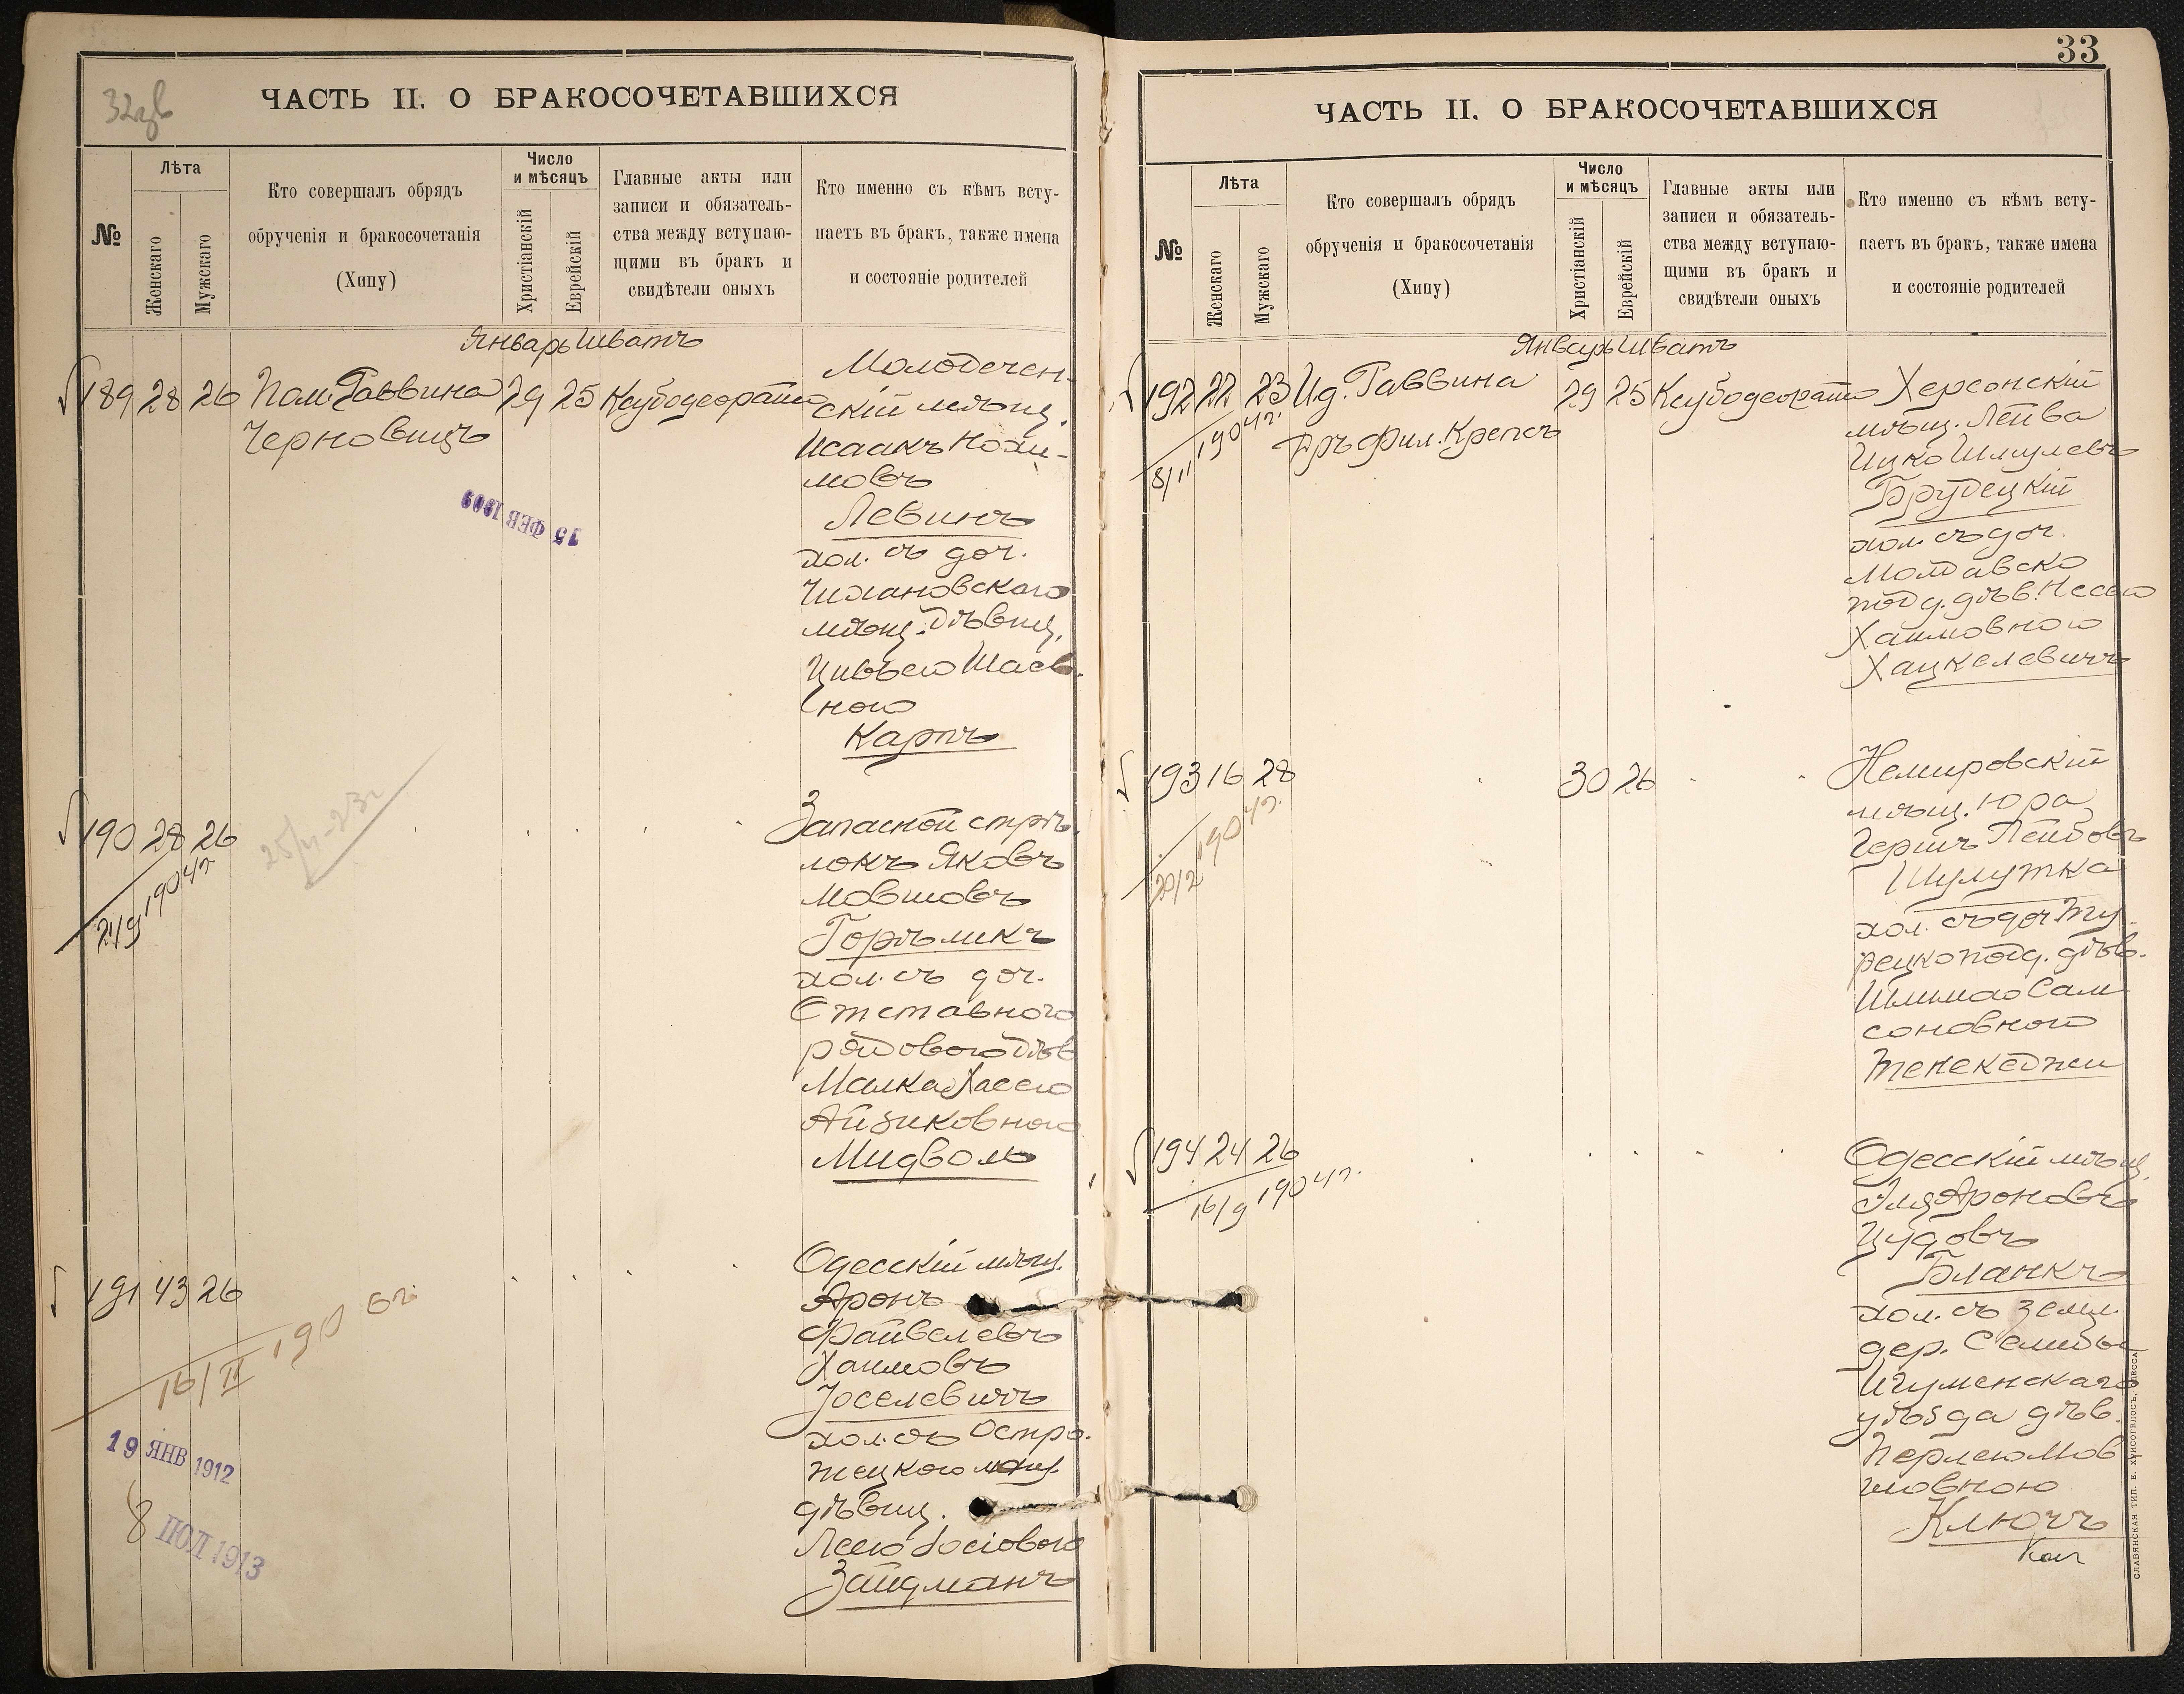 32 об
ЧАСТЬ II. О БРАКОСОЧЕТАВШИХСЯ
№
Лѣта
Женскаго
Мужскаго
Кто совершалъ обрядъ
обрученія и бракосочетанія
(Хипу)
Число
и мѣсяцъ
Христіанскій
Еврейскій
Главные акты или
записи и обязатель-
ства между вступаю-
щими въ бракъ и
свидѣтели оныхъ
Кто именно съ кѣмъ всту-
паетъ въ бракъ, также имена
и состояніе родителей
Январь Шватъ
189 28 26 Пом. Раввина 29 25
Черновицъ
15 ФЕВ 1909
Молодечен-
скій мѣщ.
Исаакъ Нохи-
мовъ
Левинъ
хол. съ доч.
мѣщ. Дѣвиц.
Цивьею Шаев-
ною
Карпъ
190 28 26
1904г.
Запасной стрѣ-
локъ Яковъ
Мовшовъ
Горѣликъ
хол. съ доч.
Отставного
рядового дѣв
Малка Хасею
Айзиковною
Мидволь
191 43 26
16/II 190 6г.
19 ЯНВ 1912
8 ИЮЛ 1913
Одесскій мѣщ.
Аронъ
Файвелевъ
Хаимовъ
Іоселевичъ
хол. съ Остро-
жецкою мѣщ.
дѣвиц.
Лею Іосіовою
Зайдманъ
33
ЧАСТЬ II. О БРАКОСОЧЕТАВШИХСЯ
№
Лѣта
Женскаго
Мужскаго
Кто совершалъ обрядъ
обрученія и бракосочетанія
(Хипу)
Число
и мѣсяцъ
Христіанскій
Еврейскій
Главные акты или
записи и обязатель-
ства между вступаю-
щими въ бракъ и
свидѣтели оныхъ
Кто именно съ кѣмъ всту-
паетъ въ бракъ, также имена
и состояніе родителей
Январь Шватъ
192 22 23 Ид. Раввина 29 25
Дръ Фил. Крепсъ
8/II 1904г.
Херсонскій
мѣщ. Лейба
Ицко Шмулевъ
Брудецкій
хол. съ доч.
Молдавско
подд. дѣв. Несею
Хаимовною
Хацкелевичъ
193 16 28 30 26
20/2 1904г.
Немировскій
мѣщ. Юра
Гершъ Лейбовъ
Шулутка
хол. съ доч Ту-
рецкоподд. дѣв.
Шлимою Сам
соновною
Тенекеджи
194 24 26
16/9 1904г.
Одесскій мѣщ.
Эля Ароновъ
Іудовъ
Бланкъ
хол. съ земл.
дер. Селибы
Игуменскаго
уѣзда дѣв.
Перлею Мов
шовною
Ключъ
СЛАВЯНСКАЯ ТИП. Е. ХРИСОГЕЛОСЪ, ОДЕССА.